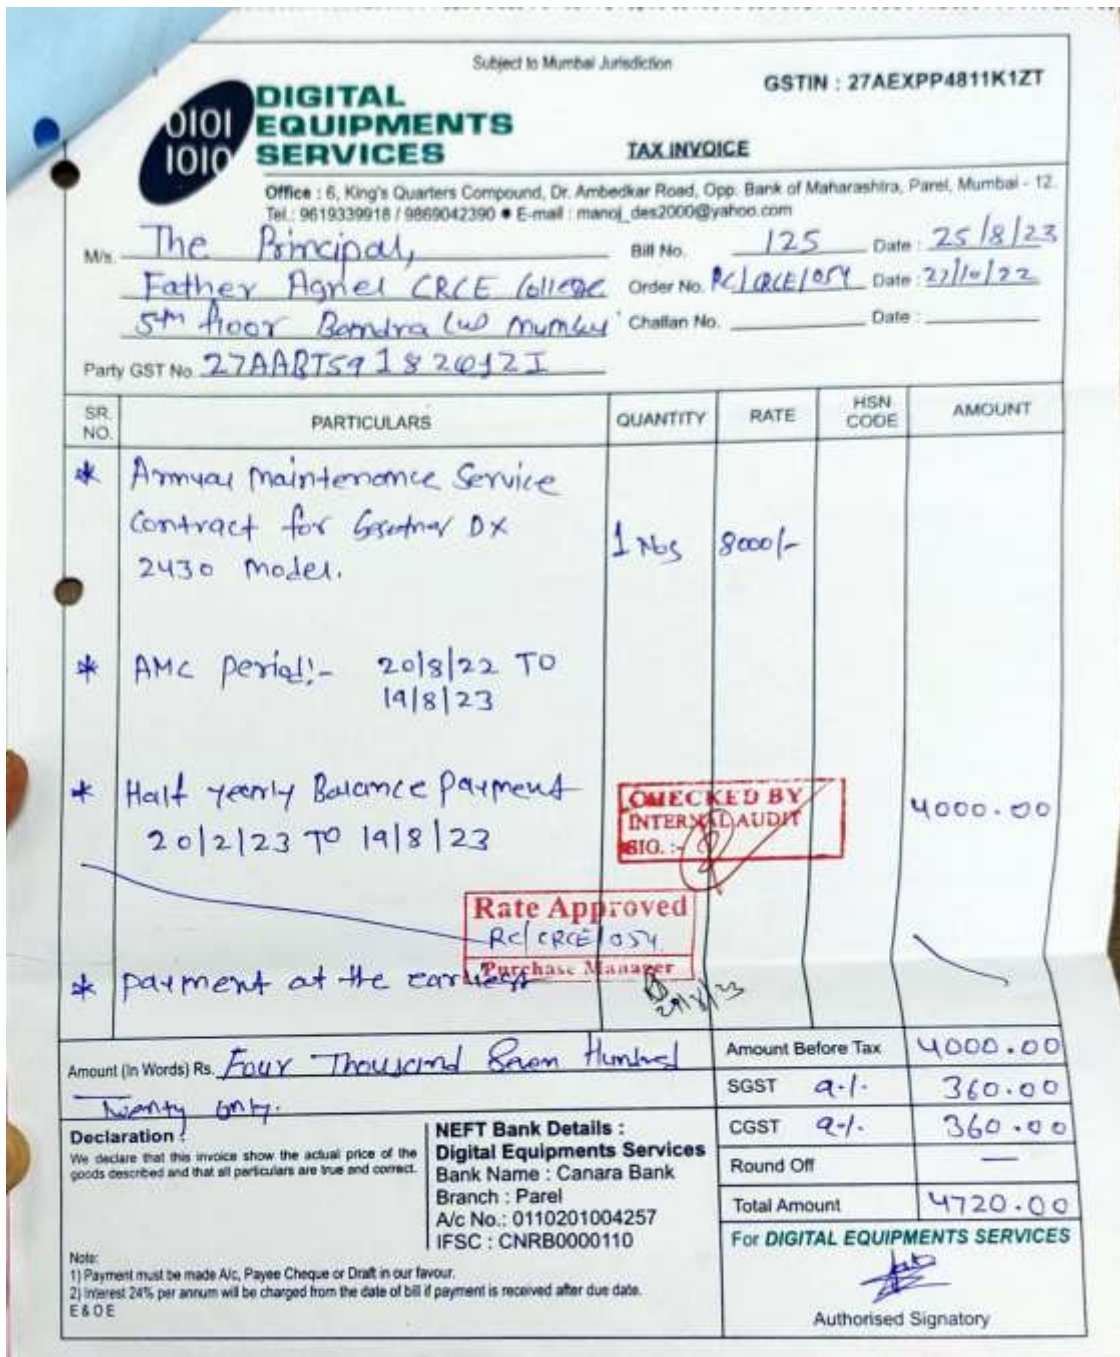 Subject to Mumbai Jurisdiction
GSTIN : 27AEXPP4811K1ZT
0101
1010
DIGITAL
EQUIPMENTS
SERVICES
TAX INVOICE
Office : 6, King's Quarters Compound, Dr. Ambedkar Road, Opp. Bank of Maharashtra, Parel, Mumbai - 12.
Tel.: 9619339918 / 9869042390 ● E-mail : manoj_des2000@yahoo.com
M/s. The Principal,
Bill No. 125 Date : 25/8/23
Father Agnel CRCE College
Order No. RC/CRCE/054 Date : 27/10/22
5th floor Bandra (w) Mumbai
Challan No. Date :
Party GST No. 27AABTS9182
SR. NO. PARTICULARS QUANTITY RATE HSN CODE AMOUNT
* Annual Maintenance Service
Contract for DX
2430 Model.
1 Nos 8000/-
* AMC Period:- 20/8/22 TO
19/8/23
* Half yearly Balance Payment 4000.00
20/2/23 TO 19/8/23
CHECKED BY
INTERNAL AUDIT
SIG. :-
Rate Approved
RC/CRCE/054
Purchase Manager
* Payment at the earliest
29/8/23
Amount (In Words) Rs. Four Thousand Seven Hundred
Twenty only.
Amount Before Tax 4000.00
SGST 9-/- 360.00
CGST 9-/- 360.00
Round Off —
Total Amount 4720.00
Declaration :
We declare that this invoice show the actual price of the
goods described and that all particulars are true and correct.
NEFT Bank Details :
Digital Equipments Services
Bank Name : Canara Bank
Branch : Parel
A/c No.: 0110201004257
IFSC : CNRB0000110
For DIGITAL EQUIPMENTS SERVICES
Authorised Signatory
Note:
1) Payment must be made A/c, Payee Cheque or Draft in our favour.
2) Interest 24% per annum will be charged from the date of bill if payment is received after due date.
E & O E